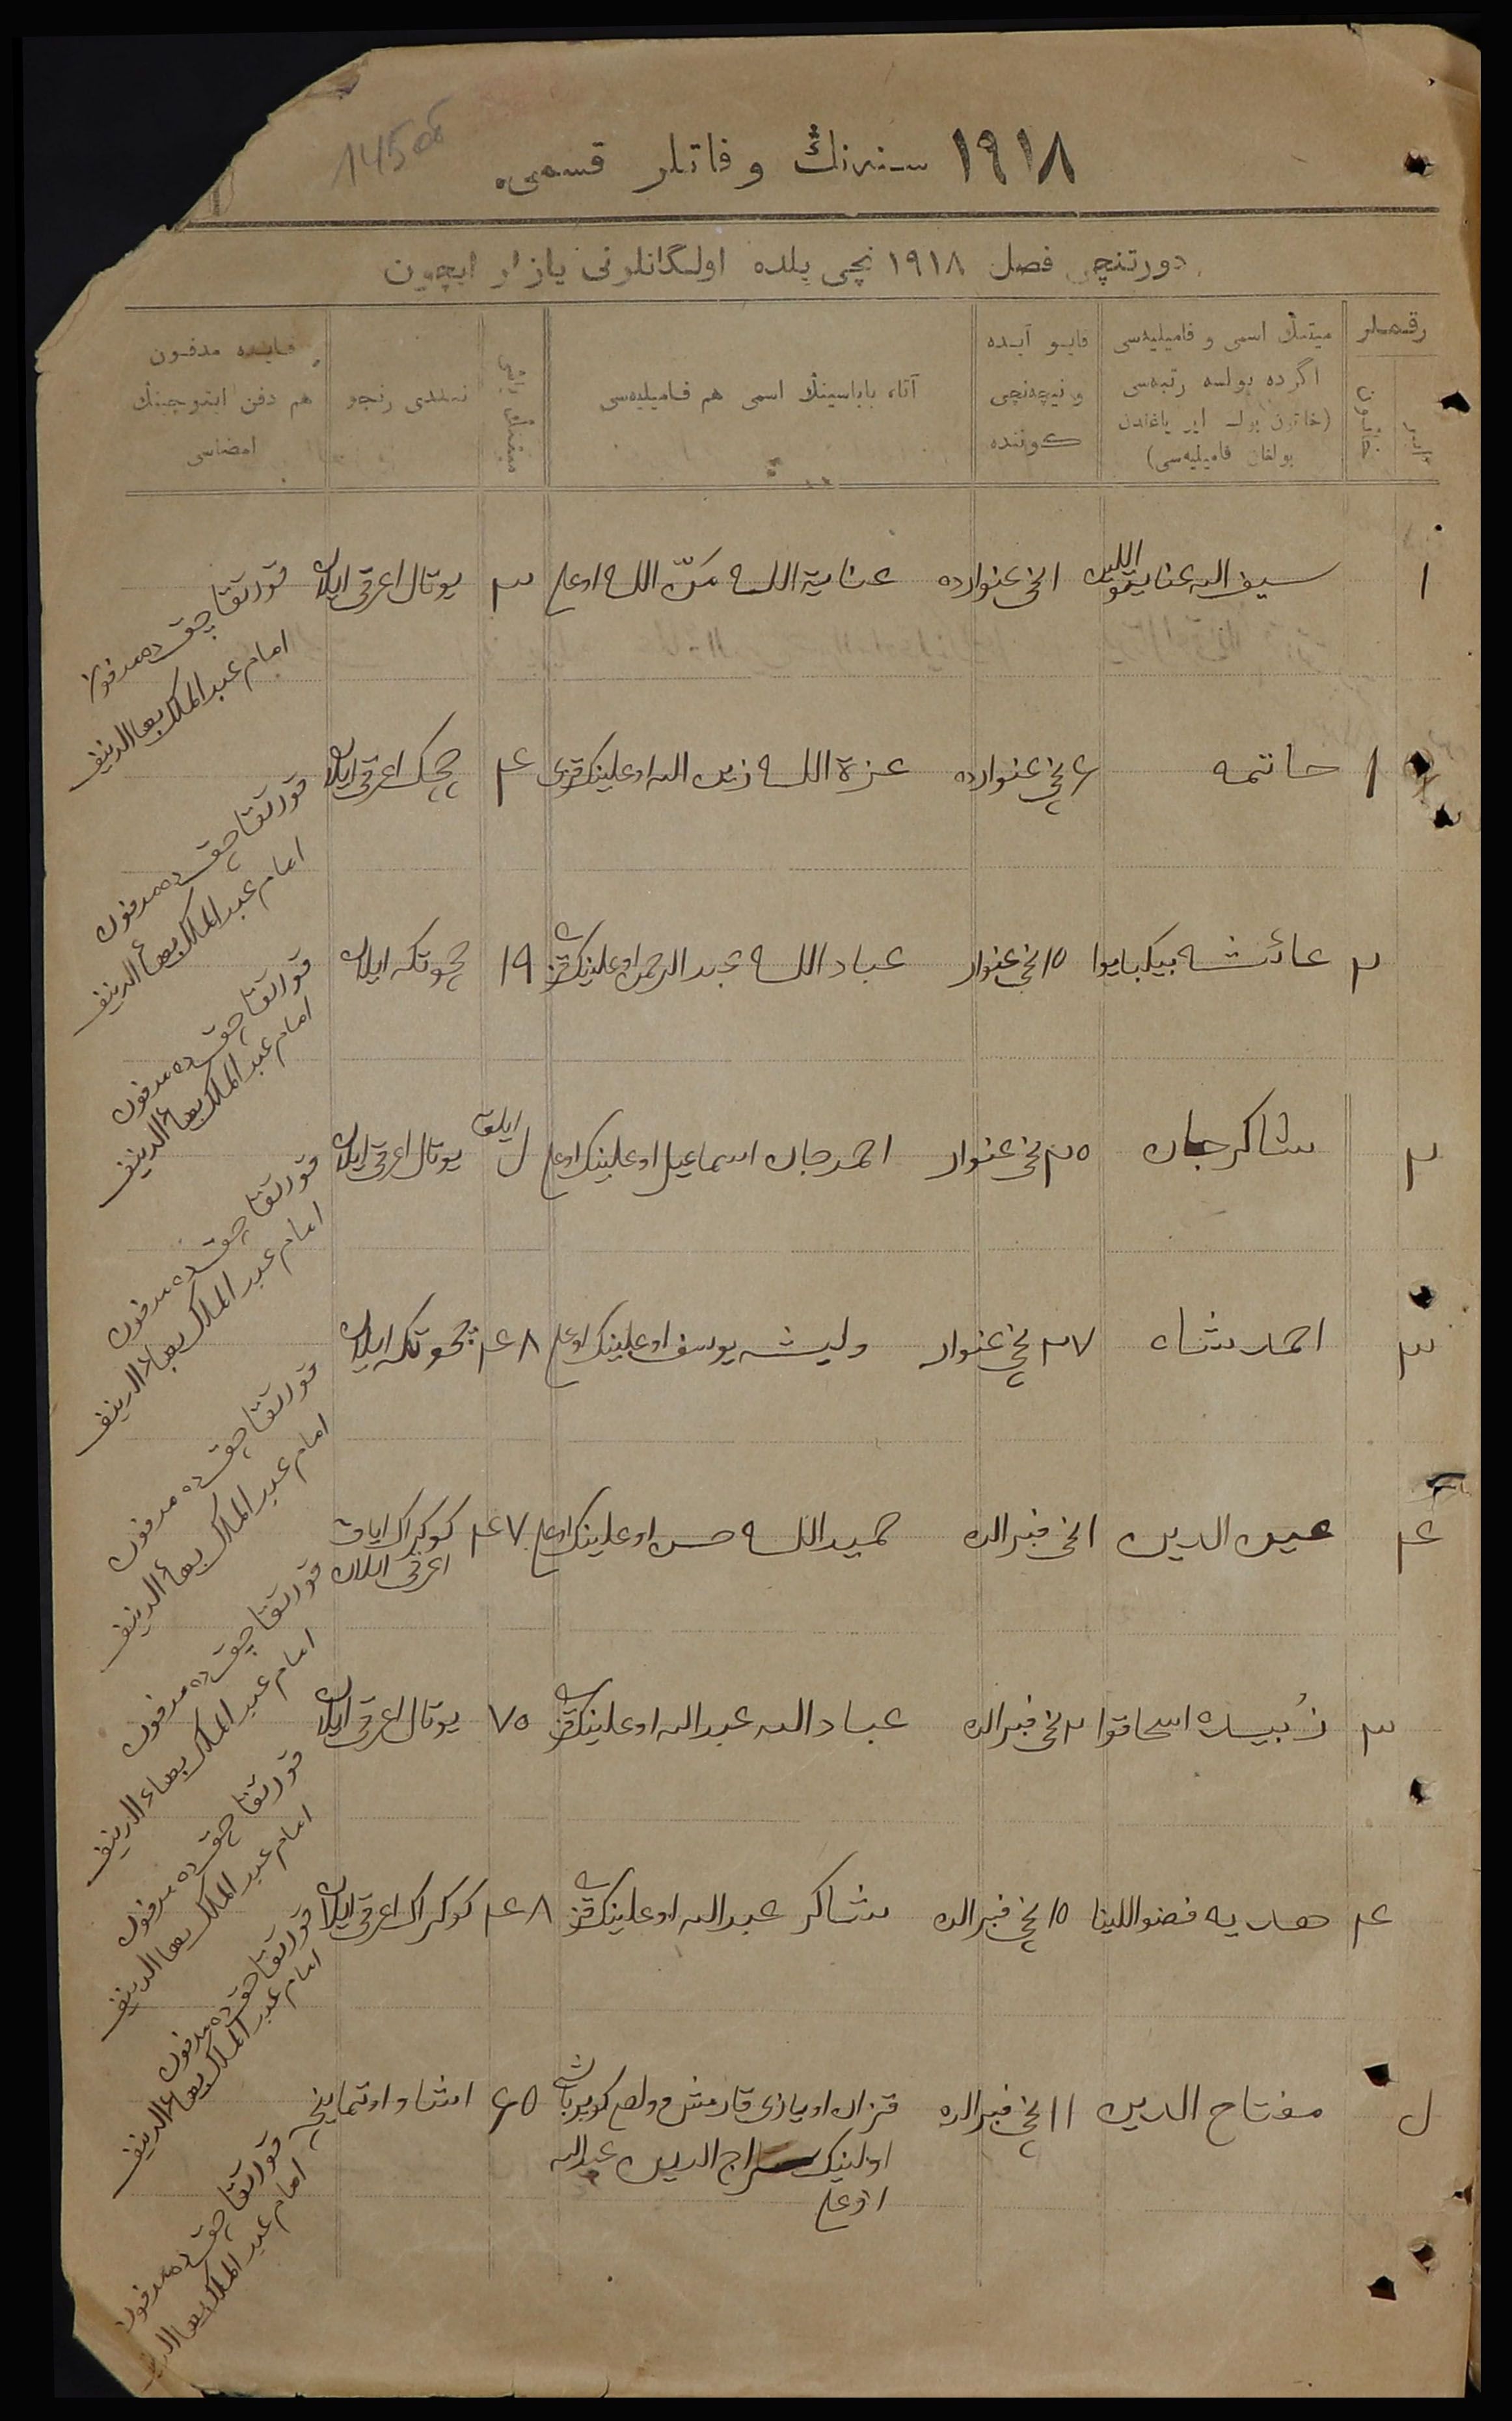 145 об
١٩١٨ سنه‌نڭ وفاتلر قسمی.
دورتنچی فصل ١٩١٨ نچی یلده اولگانلرنی یازار ایچون
رقم‌لر
خاتون
ایر
میتنڭ اسمی و فامیلیه‌سی
اگرده بولسه رتبه‌سی
(خاتون بولسه ایر یاغندن
بولغان فامیلیه‌سی)
قایو آیده
و نیچه‌نچی
کوننده
آتا، باباسینڭ اسمی هم فامیلیه‌سی
میتنڭ یاشی
نه‌ندی رنجو
قایده مدفون
هم دفن ایتوچینڭ
امضاسی
١ سیف الله عنایة اللیف ١ نخی غنوارده عنایة اللـه منّ اللـه اوغلی ٣ یوتال اغرقی ایلان
قورتقاچق ده مدفون
امام عبد الملک بهاالدینف
١ حاتمه ٤ نخی غنوارده عزة اللـه زین الله اوغلینک قزی ٤ چچک اغرقی ایلان
قورتقاچق ده مدفون
امام عبد الملک بهاءالدینف
٢ عائشه بیکبایوا ١٥ نخی غنوار عباد اللـه عبد الرحمن اوغلینک قزی ١٩ چحوتکه ایلان
قورتقاچق ده مدفون
امام عبد الملک بهاءالدینف
٢ شاکرجان ٢٥ نخی غنوار احمدجان اسماعیل اوغلینک اوغلی ایلق یوتال اغرقی ایلان
قورتقاچق ده مدفون
امام عبد الملک بهاءالدینف
٣ احمدشاه ٢٧ نخی غنوار ولیشه یوسف اوغلینک اوغلی ٤٨ چحوتکه ایلان
قورتقاچق ده مدفون
امام عبد الملک بهاءالدینف
٤ عین الدین ١ نخی فبرالده حمید اللـه حسن اوغلینک اوغلی ٤٧ کوکراک ایاق
اغرقی ایلان
قورتقاچق ده مدفون
امام عبد الملک بهاءالدینف
٣ زُبیده اسحاقوا ٢ نخی فبرالده عباد الله عبد الله اوغلینک قزی ٧٥ یوتال اغرقی ایلان
قورتقاچق ده مدفون
امام عبد الملک بهاءالدینف
٤ هدیه فضواللینا ١٥ نخی فبرالده شاکر عبد الله اوغلینک قزی ٤٨ کوکراک اغرقی ایلان
قورتقاچق ده مدفون
امام عبد الملک بهاءالدینف
مفتاح الدین ١١ نخی فبرالده قزان اویازی قارمش
اولینک سراج الدین عبد الله
اوغلی
٦٥
قورتقاچق ده مدفون
امام عبد الملک بهاالدینف